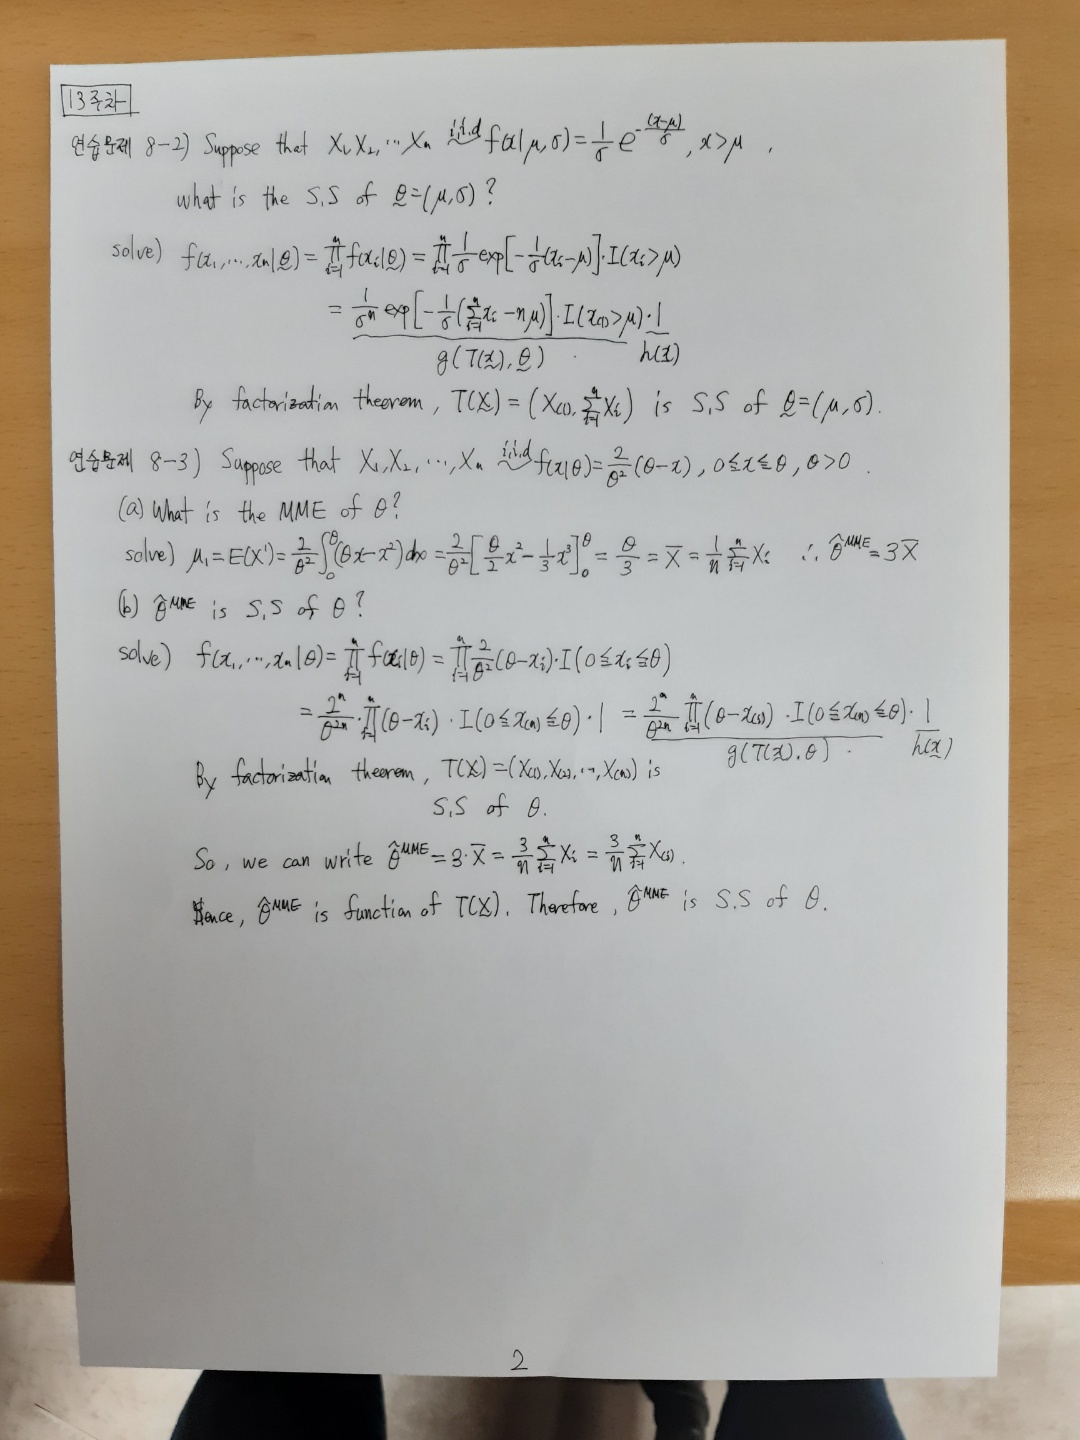 13주차
연습문제 8-2) Suppose that X₁, X₂, ⋯ Xₙ i.i.d f(x|μ, σ) = 1/σ e^{-(x-μ)/σ}, x>μ ,
what is the S.S of θ=(μ,σ)?
solve) f(x₁, ⋯, xₙ|θ) = ∏_{i=1}^{n} f(xᵢ|θ) = ∏_{i=1}^{n} 1/σ exp[-1/σ(xᵢ-μ)]·I(xᵢ>μ)
= 1/σⁿ exp[-1/σ(∑_{i=1}^{n} xᵢ - nμ)]·I(x₍₁₎>μ)·1
g(T(x), θ) h(x)
By factorization theorem, T(X) = (X₍₁₎, ∑_{i=1}^{n} Xᵢ) is S.S of θ=(μ,σ).
연습문제 8-3) Suppose that X₁, X₂, ⋯, Xₙ i.i.d f(x|θ) = 2/θ² (θ-x), 0≦x≦θ, θ>0.
(a) What is the MME of θ?
solve) μ₁=E(X¹)= 2/θ² ∫₀^θ (θx-x²)dx = 2/θ² [θ/2 x² - 1/3 x³]₀^θ = θ/3 = X̄ = 1/n ∑_{i=1}^{n} Xᵢ ∴ θ̂^{MME} = 3X̄
(b) θ̂^{MME} is S.S of θ?
solve) f(x₁, ⋯, xₙ|θ) = ∏_{i=1}^{n} f(xᵢ|θ) = ∏_{i=1}^{n} 2/θ² (θ-xᵢ)·I(0≦xᵢ≦θ)
= 2ⁿ/θ²ⁿ · ∏_{i=1}^{n} (θ-xᵢ) · I(0≦x₍ₙ₎≦θ)·1 = 2ⁿ/θ²ⁿ ∏_{i=1}^{n} (θ-x₍ᵢ₎) · I(0≦x₍ₙ₎≦θ)·1
g(T(x), θ) h(x)
By factorization theorem, T(X) = (X₍₁₎, X₍₂₎, ⋯, X₍ₙ₎) is
S.S of θ.
So, we can write θ̂^{MME} = 3·X̄ = 3/n ∑_{i=1}^{n} Xᵢ = 3/n ∑_{i=1}^{n} X₍ᵢ₎.
Hence, θ̂^{MME} is function of T(X). Therefore, θ̂^{MME} is S.S of θ.
2